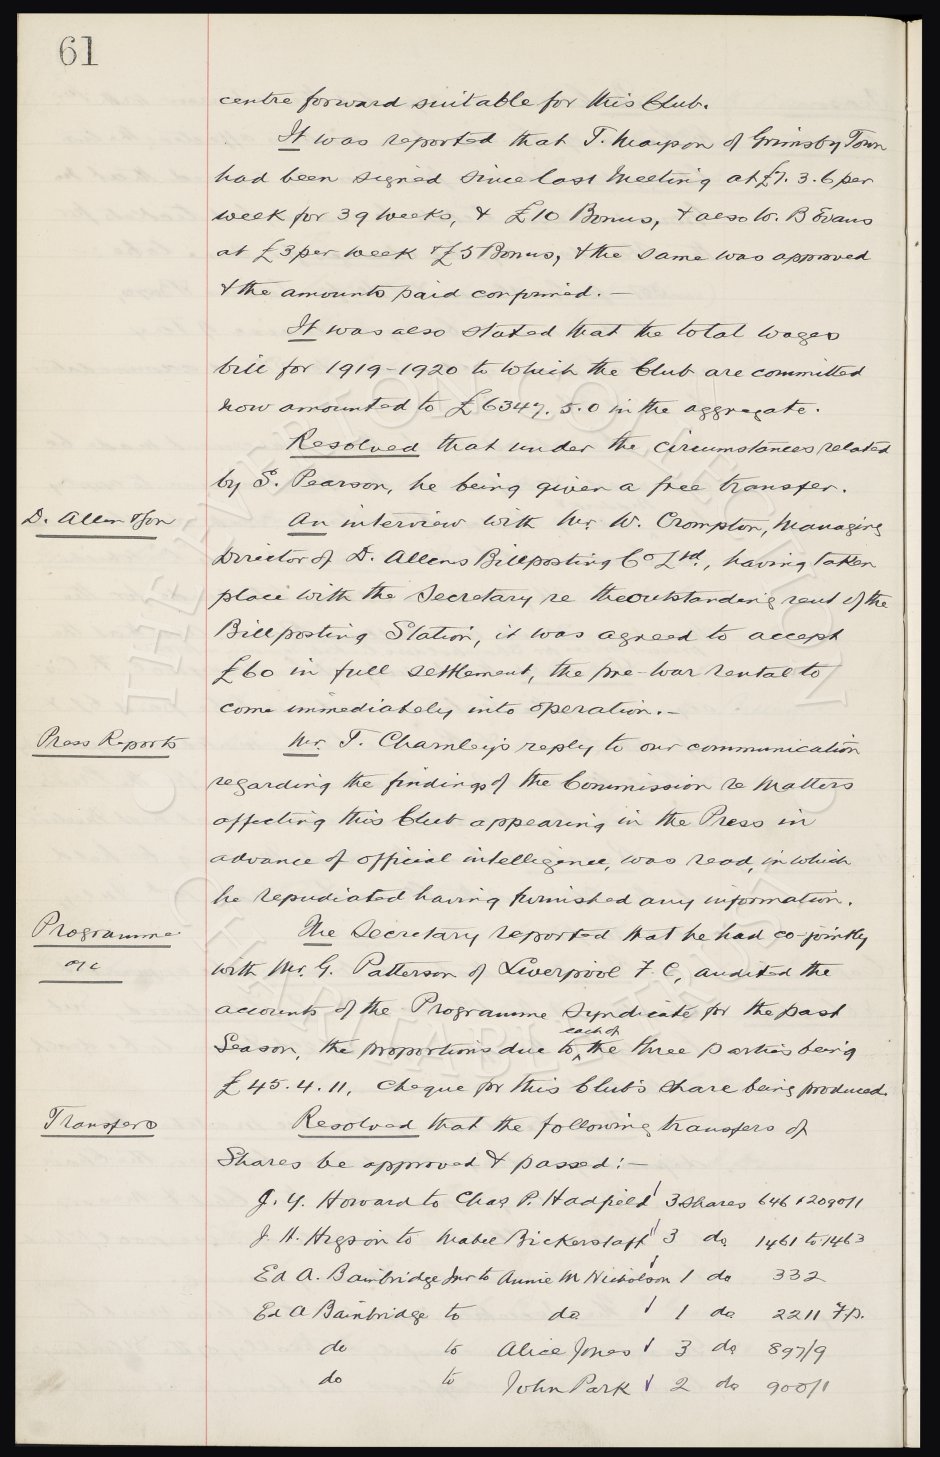 61
centre forward suitable for this Club.
It was reported that T. Mayson of Grimsby Town
had been signed since last Meeting at £7. 3. 6 per
week for 39 weeks, & £10 Bonus, & also W. B Evans
at £3 per week & £5 Bonus, & the same was approved
& the amounts paid confirmed. —
It was also stated that the total wages
bill for 1919-1920 to which the Club are committed
now amounted to £6347. 5. 0 in the aggregate.
Resolved that under the circumstances related
by S. Pearson, he being given a free transfer.
D. Allen & Son
An interview with Mr W. Crompton, Managing
Director of D. Allens Billposting Co Ltd., having taken
place with the Secretary re the outstanding rent of the
Billposting Station, it was agreed to accept
£60 in full settlement, the pre-war rental to
come immediately into operation. —
Press Reports
Mr. T. Charnley's reply to our communication
regarding the findings of the Commission re Matters
affecting this Club appearing in the Press in
advance of official intelligence, was read, in which
he repudiated having furnished any information.
Programme
a/c
The Secretary reported that he had co-jointly
with Mr. G. Patterson of Liverpool F. C, audited the
accounts of the Programme Syndicate for the past
Season, the proportions due to each of the three parties being
£45. 4. 11, cheque for this Club's share being produced.
Transfers
Resolved that the following transfers of
Shares be approved & passed: —
J. Y. Howard to Chas P. Hadfield 3 Shares 646 & 2090/1
J. H. Higson to Mabel Bickerstaff 3 do 1461 to 1463
Ed A. Bainbridge Jnr to Annie M Nicholson 1 do 332
Ed A Bainbridge to do 1 do 2211 F.p.
do to Alice Jones 3 do 897/9
do to John Park 2 do 900/1